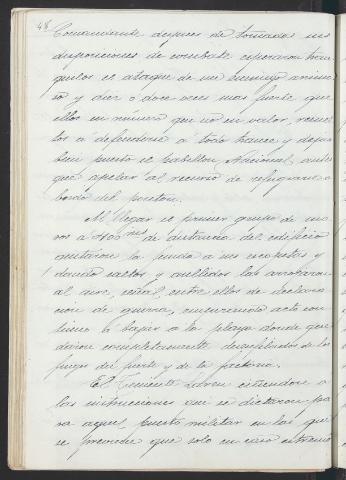 48
Comandante despues de tomadas sus
disposiciones de combate esperaron tran
quilos el ataque de un enemigo animo
so y diez ó doce veces mas fuerte que
ellos en número que no en valor, resuel
tos á defenderse á todo trance y dejar
bien puesto el pabellon Nacional, antes
que apelar al recurso de refugiarse á
bordo del ponton.
Al llegar el primer grupo de mo
ros á 400 ms de distancia del edificio
quitaron la funda á sus escopetas y
dando saltos y aullidos las arrojaron
al aire, señal, entre ellos de declara
cion de guerra, empezando acto con
tinuo á bajar á la playa donde que
daron completamente desenfilados de los
fuegos del fuerte y de la factoria.
El Teniente ciñendose á
las instrucciones que se dictaron pa
ra aquel puesto militar en las que
se prevee que solo en caso estremo